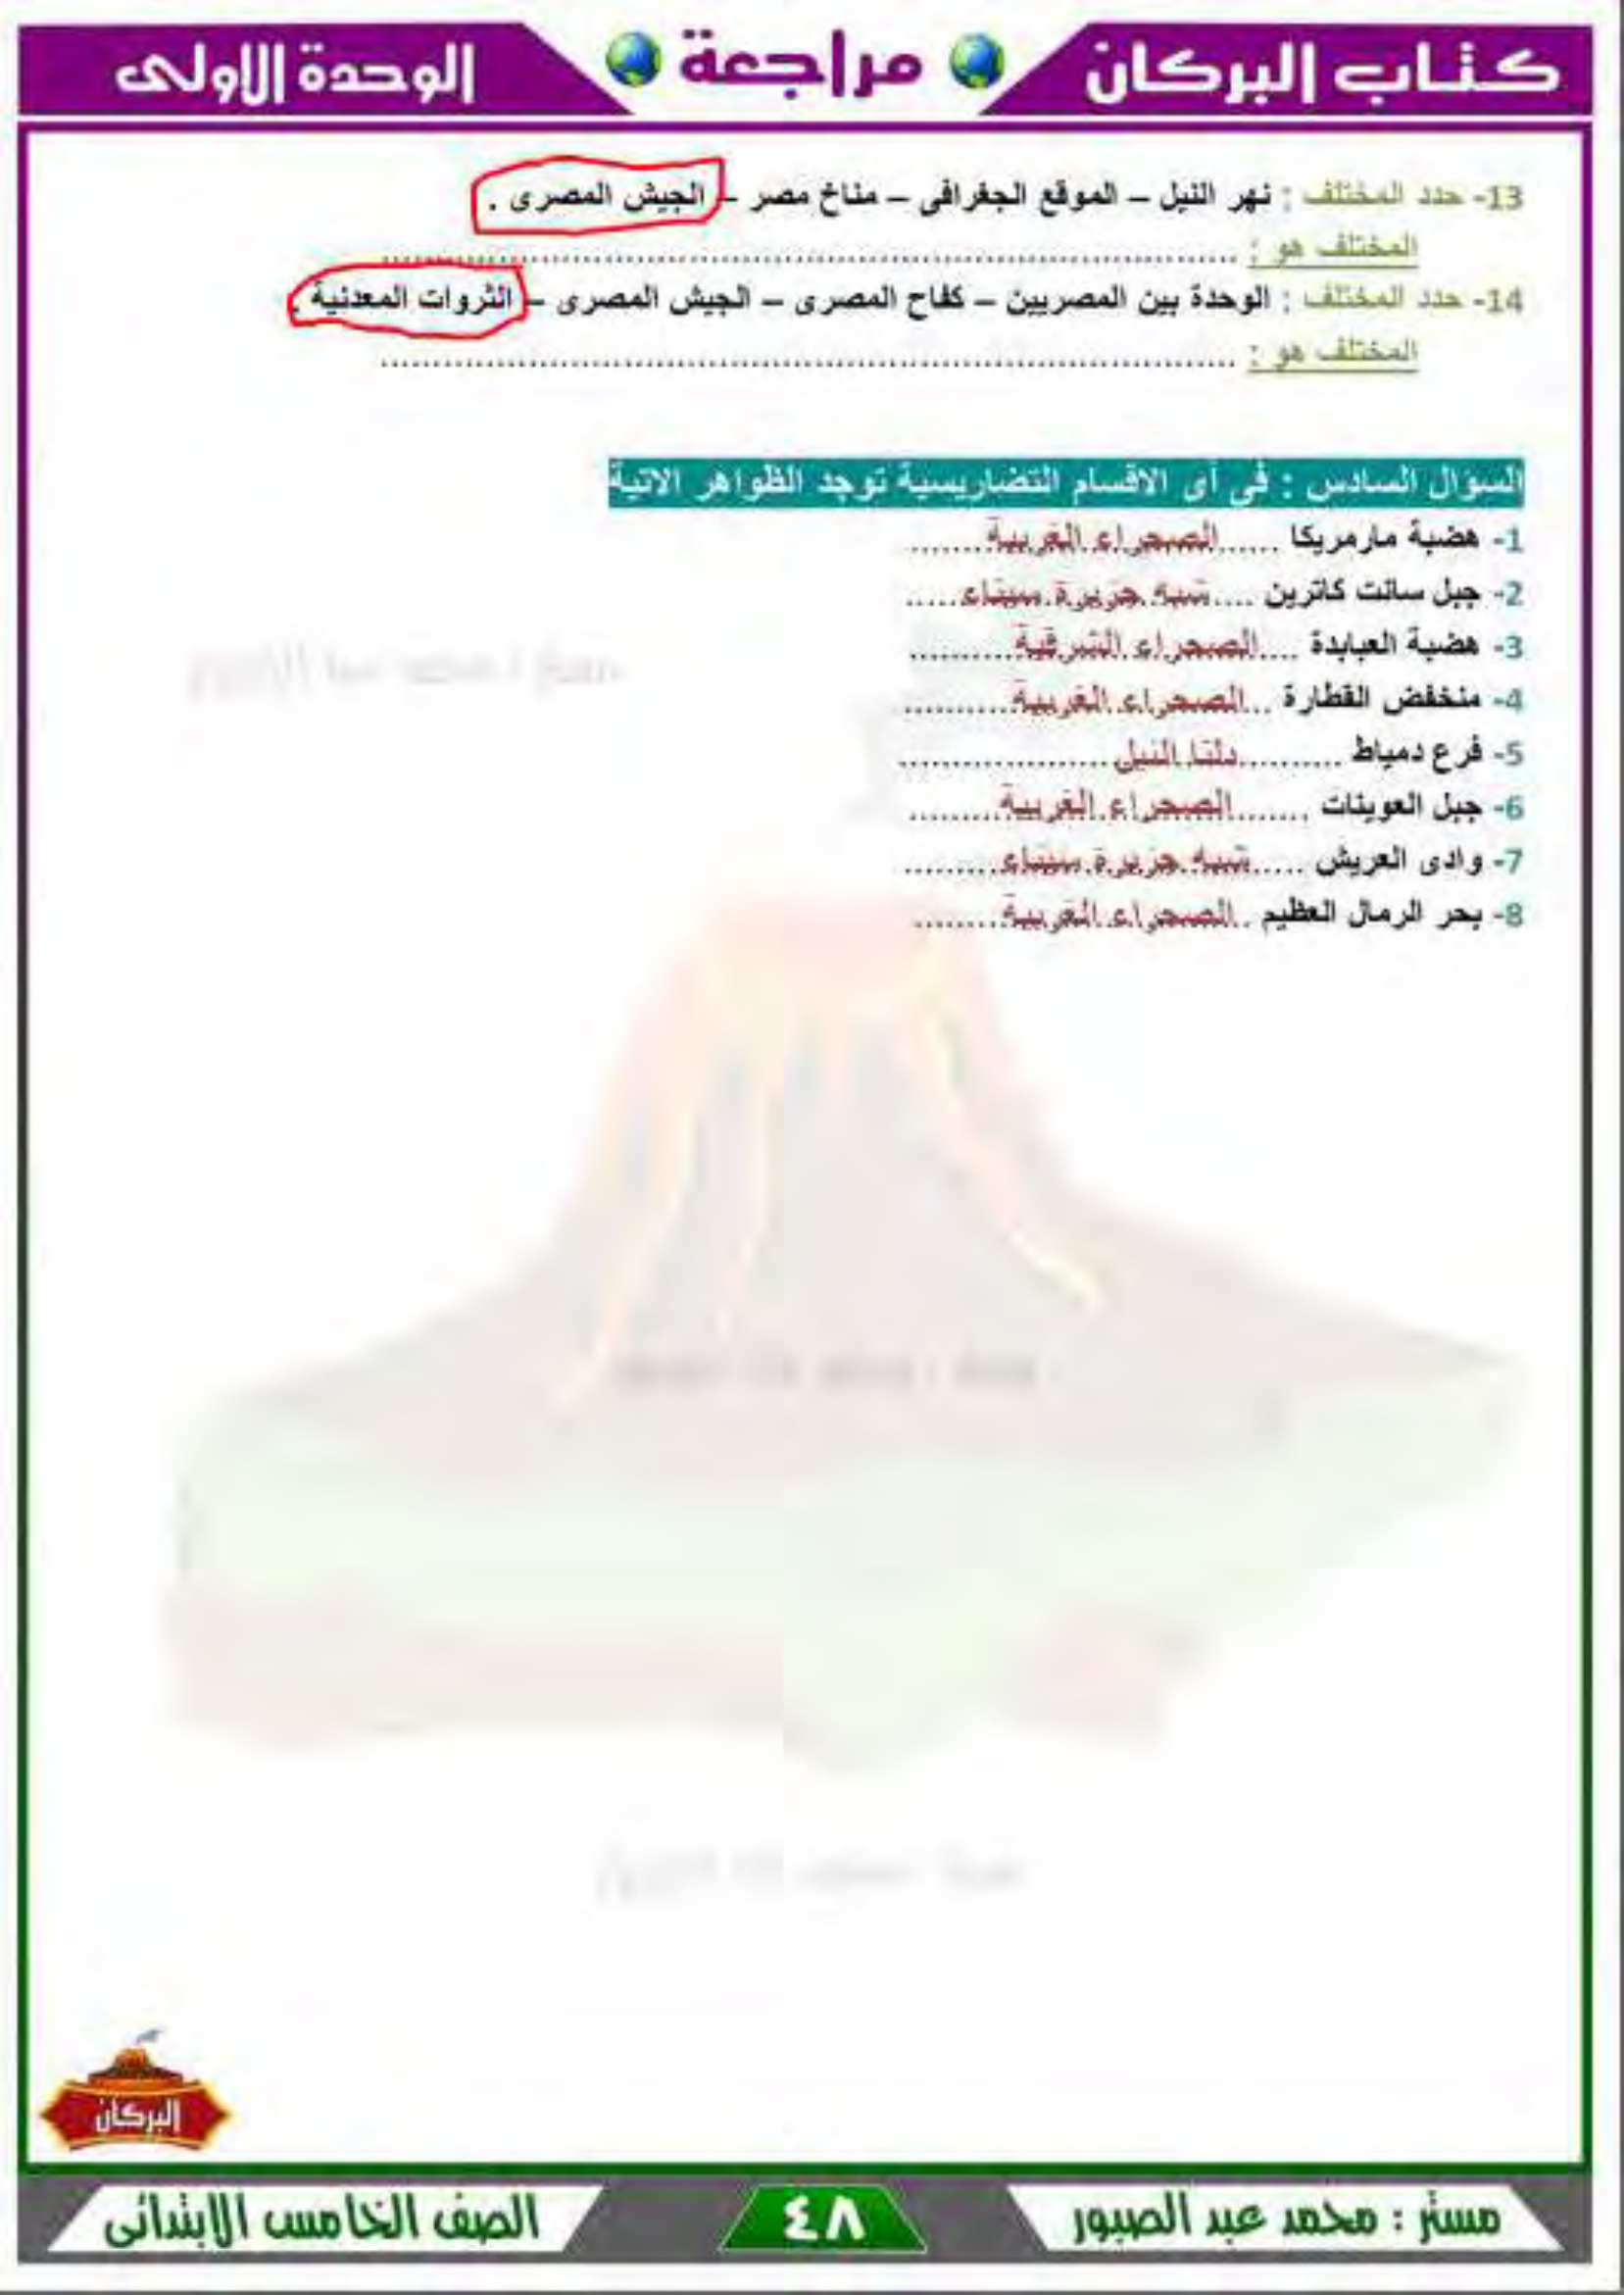 كتاب البركان مراجعة الوحدة الاولى
13- حدد المختلف : نهر النيل – الموقع الجغرافى – مناخ مصر – الجيش المصرى .
المختلف هو : ..........................................................................
14- حدد المختلف : الوحدة بين المصريين – كفاح المصرى – الجيش المصرى – الثروات المعدنية .
المختلف هو : ..........................................................................
السؤال السادس : فى أى الاقسام التضاريسية توجد الظواهر الاتية
1- هضبة مارمريكا ......الصحراء الغربية.......
2- جبل سانت كاترين ....شبه جزيرة سيناء.....
3- هضبة العبابدة ....الصحراء الشرقية..........
4- منخفض القطارة ...الصحراء الغربية..........
5- فرع دمياط ..........دلتا النيل....................
6- جبل العوينات .......الصحراء الغربية.........
7- وادى العريش .....شبه جزيرة سيناء.........
8- بحر الرمال العظيم ..الصحراء الغربية........
البركان
مستر : محمد عبد الصبور ٤٨ الصف الخامس الابتدائى